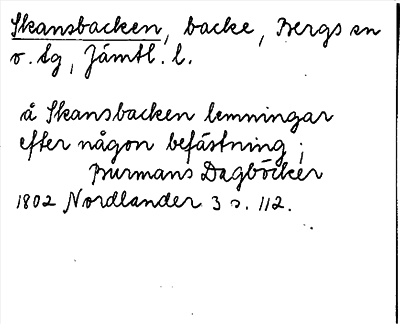 Skansbacken, backe, Bergs sn
v. tg, Jämtl. l.
å Skansbacken lemningar
efter någon befästning;
Burmans Dagböcker
1802 Nordlander 3 s. 112.